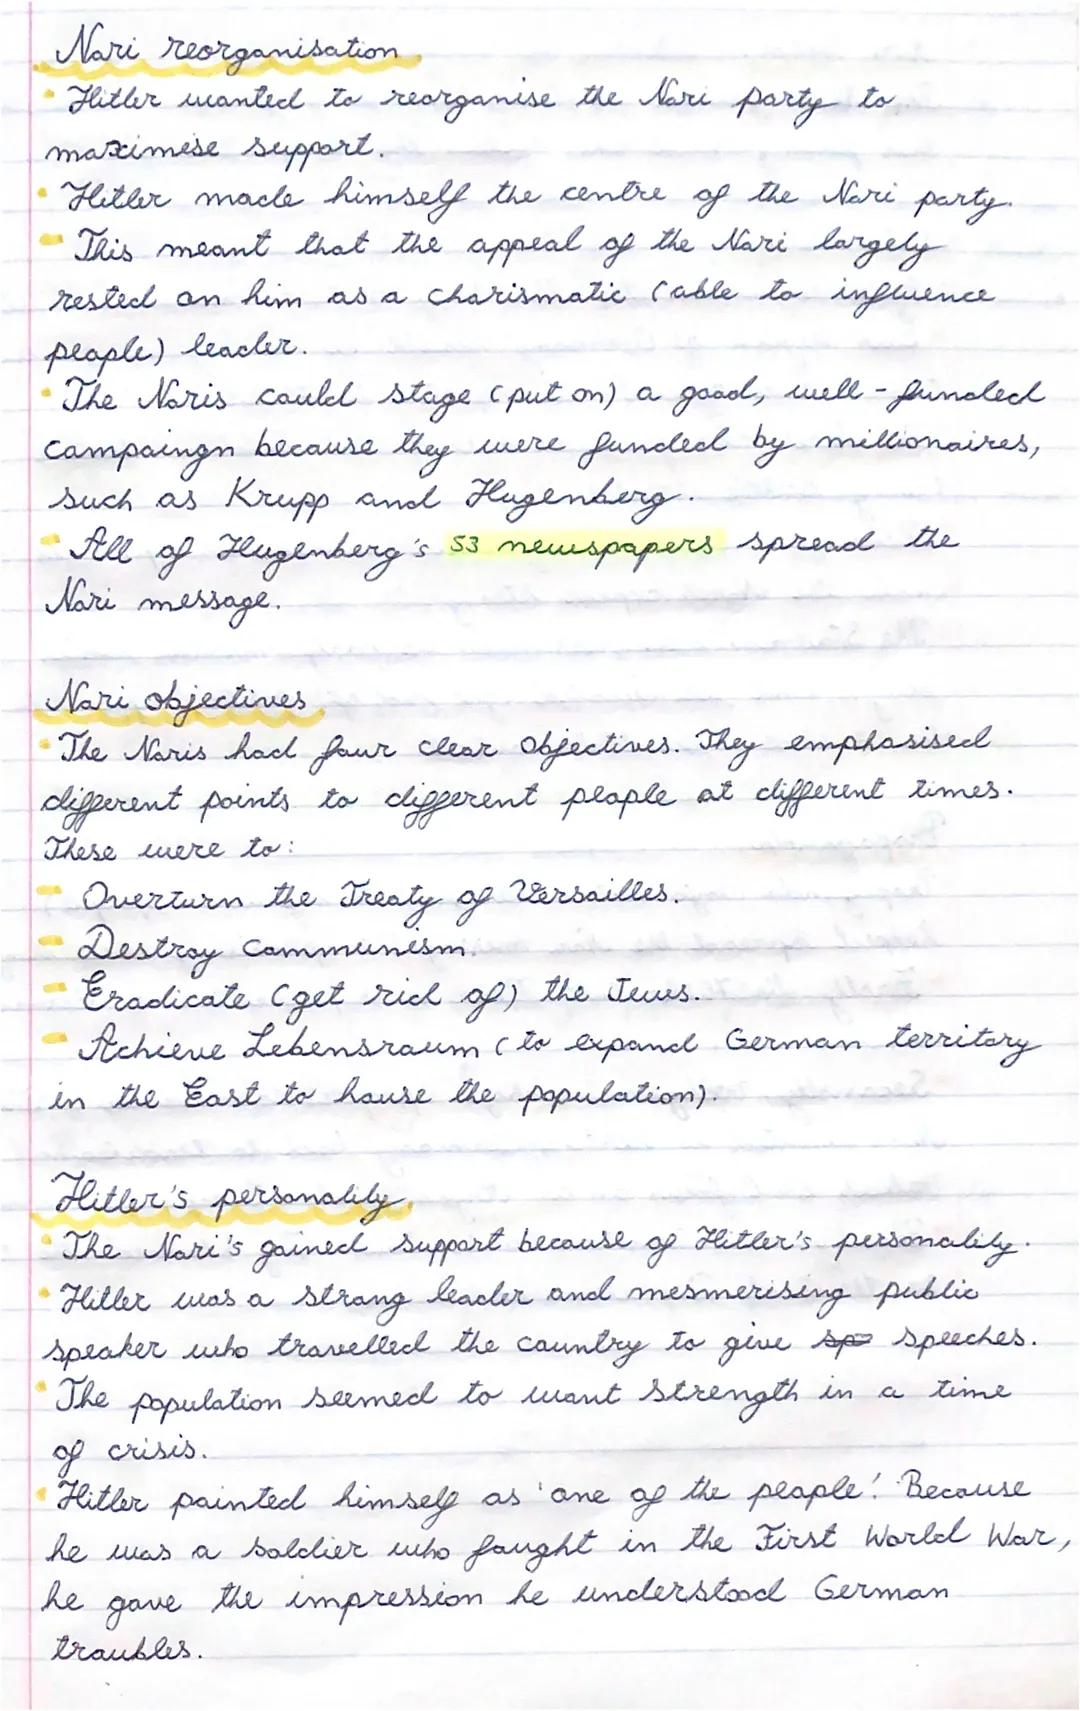 Nazi reorganisation
• Hitler wanted to reorganise the Nazi party to
maximise support.
• Hitler made himself the centre of the Nazi party.
- This meant that the appeal of the Nazi largely
rested on him as a charismatic (able to influence
people) leader.
• The Nazis could stage (put on) a good, well-funded
campaingn because they were funded by millionaires,
such as Krupp and Hugenberg.
- All of Hugenberg's 53 newspapers spread the
Nazi message.
Nazi objectives
• The Nazis had four clear objectives. They emphasised
different points to different people at different times.
These were to:
- Overturn the Treaty of Versailles.
- Destroy communism.
- Eradicate (get rid of) the Jews.
- Achieve Lebensraum (to expand German territory
in the East to house the population).
Hitler's personality
• The Nazi's gained support because of Hitler's personality.
• Hitler was a strong leader and mesmerising public
speaker who travelled the country to give sp speeches.
• The population seemed to want strength in a time
of crisis.
• Hitler painted himself as 'one of the people'. Because
he was a soldier who fought in the First World War,
he gave the impression he understood German
troubles.